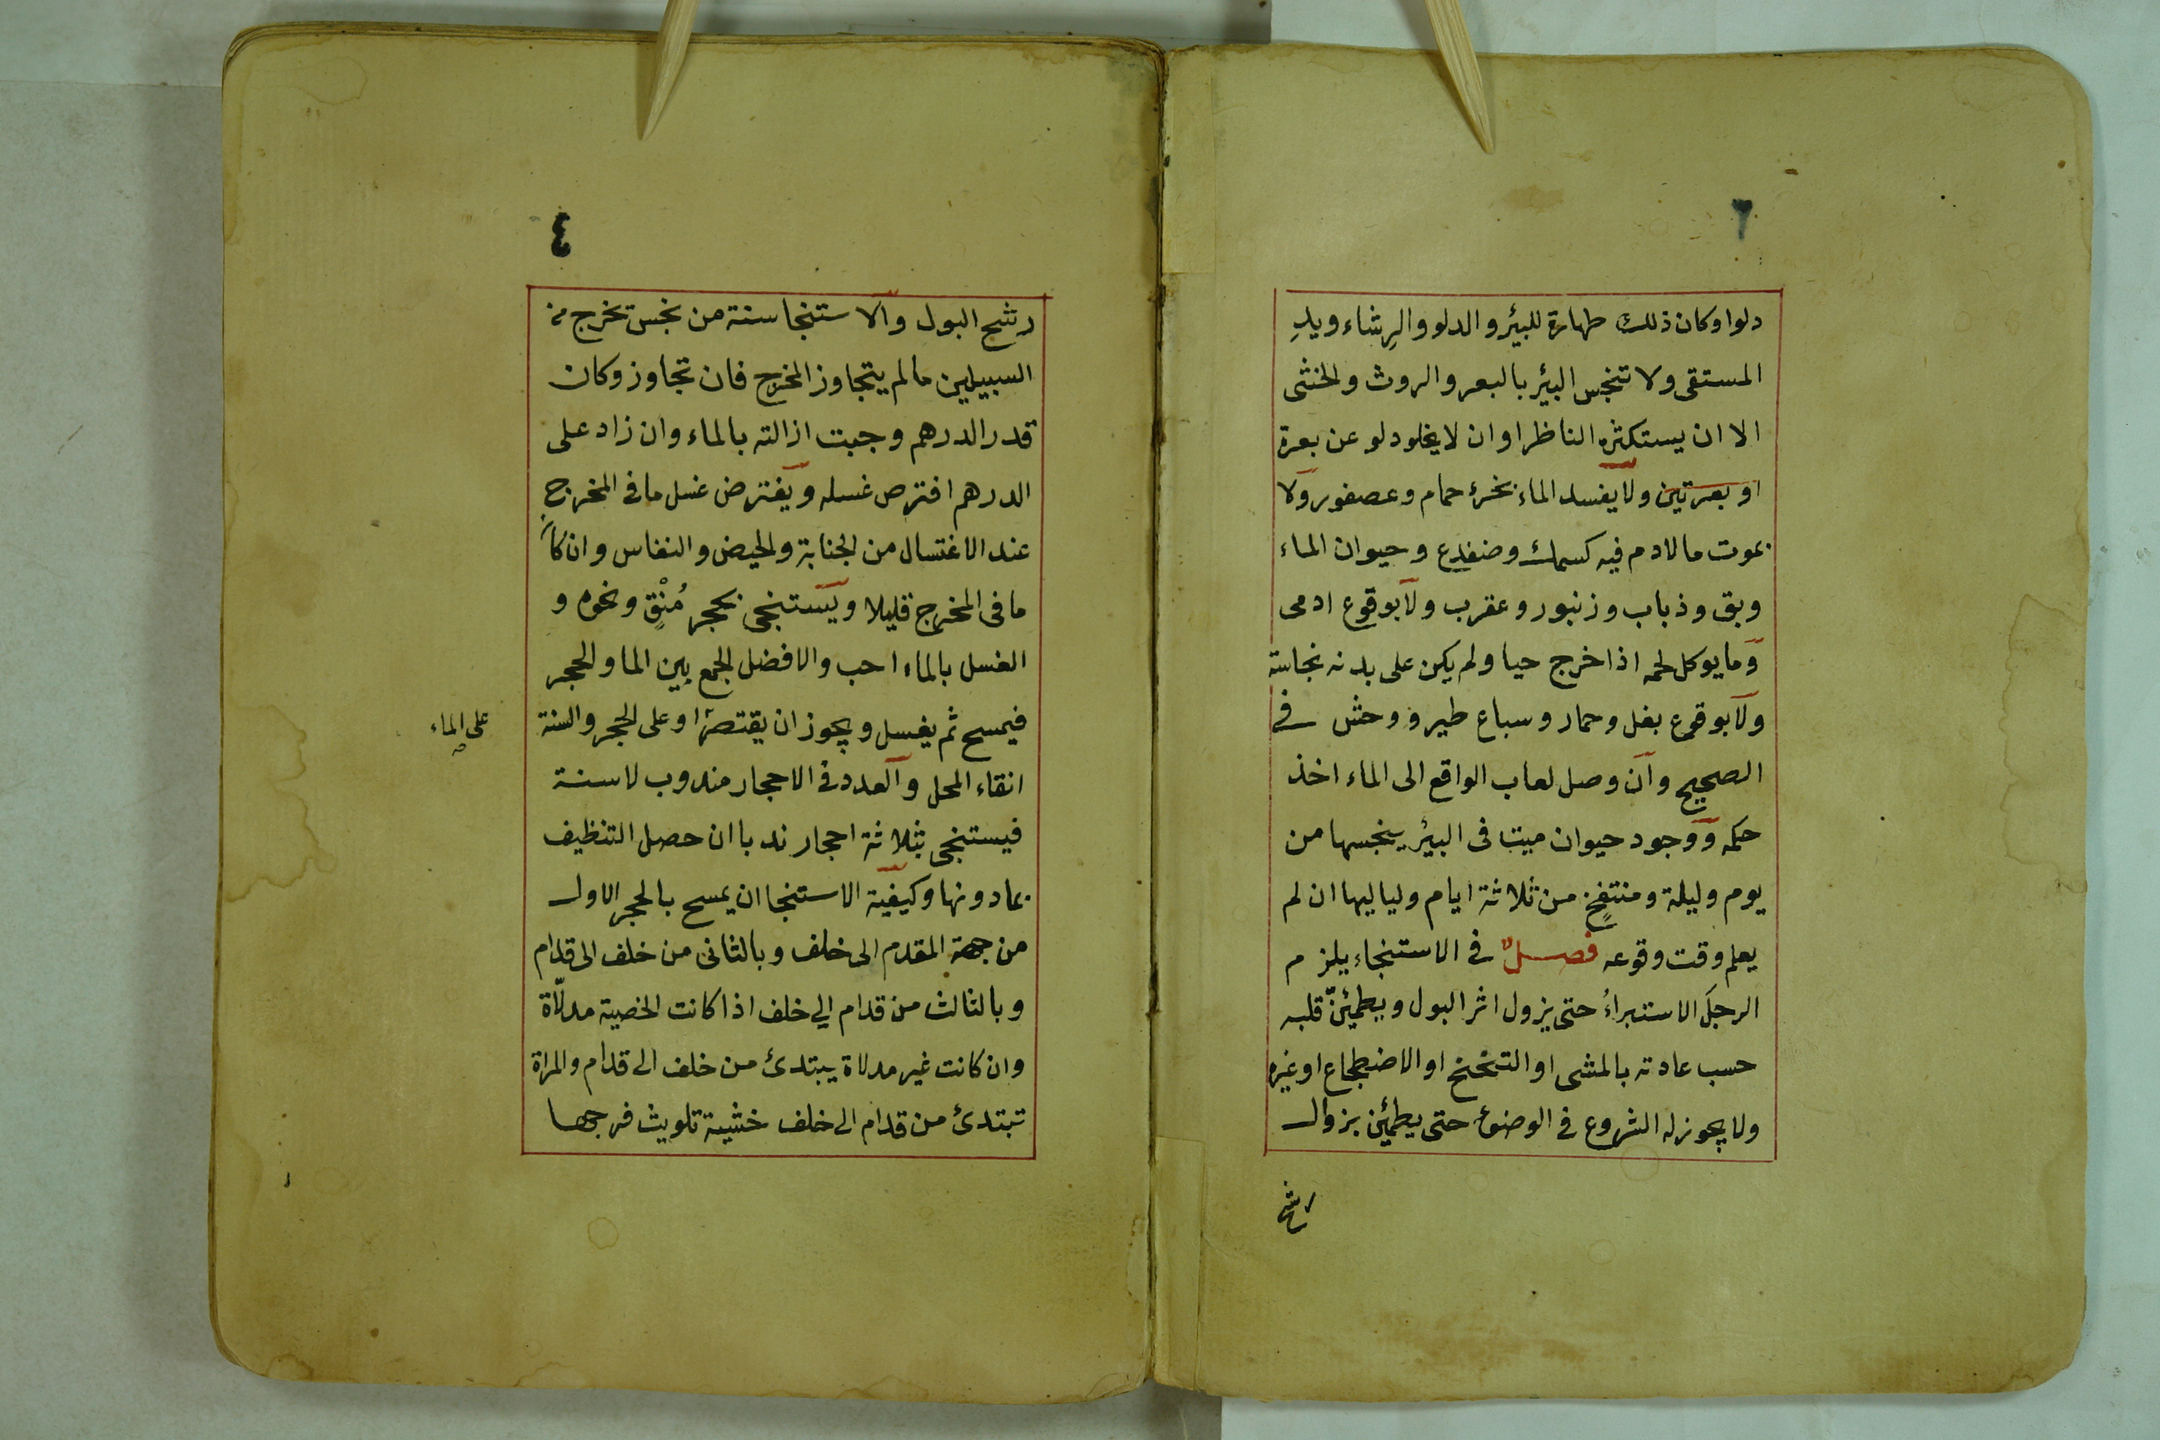 دلوا وكان ذلك طهارة للبئر والدلو والرِشاء ويدِ
المستقى ولا تنجس البئر بالبعر والروث والخثى
الا ان يستكثره الناظر او ان لا يخلو دلو عن بعرة
او بعرتين ولا يفسد الماء بخرء حمام وعصفور ولا
بموت مالا دم فيه كسمك وضفدع وحيوان الماء
وبق وذباب وزنبور وعقرب ولا بوقوع ادمى
وما يوكل لحمه اذا خرج حيا ولم يكن على بدنه نجاسة
ولا بوقوع بغل وحمار وسباع طير ووحش فى
الصحيح وان وصل لعاب الواقع الى الماء اخذ
حكمه ووجود حيوان ميت فى البئر ينجسها من
يوم وليلة ومنتفخٍ من ثلاثة ايام ولياليها ان لم
يعلم وقت وقوعه فصل فى الاستنجاء يلزم
الرجلَ الاستبراءُ حتى يزول اثر البول ويطمئنّ قلبه
حسب عادته بالمشى او التنحنح او الاضطجاع او غيره
ولا يجوز له الشروع فى الوضوء حتى يطمئن بزوال
رشح
٤
رشح البول والاستنجا سنة من نجس تخرج من
السبيلين مالم يتجاوز المخرج فان تجاوز وكان
قدر الدرهم وجبت ازالته بالماء وان زاد على
الدرهم افترض غسله ويفترض غسل ما فى المخرج
عند الاغتسال من الجنابة والحيض والنفاس وان كان
ما فى المخرج قليلا ويستنجى بحجر مُنْقٍ ونحوه و
الغسل بالماء احب والافضل الجمع بين الما والحجر
فيمسح ثم يغسل ويجوز ان يقتصر او على الحجر والسنة
على الماء
انقاء المحل والعدد فى الاحجار مندوب لا سنة
فيستنجى بثلاثة احجار ندبا ان حصل التنظيف
بما دونها وكيفية الاستنجا ان يمسح بالحجر الاول
من جهة المقدم الى خلف وبالثانى من خلف الى قدام
وبالثالث من قدام الى خلف اذا كانت الخصية مدلّاة
وان كانت غير مدلاة يبتدئ من خلف الى قدام والمراة
تبتدئ من قدام الى خلف خشية تلويث فرجها